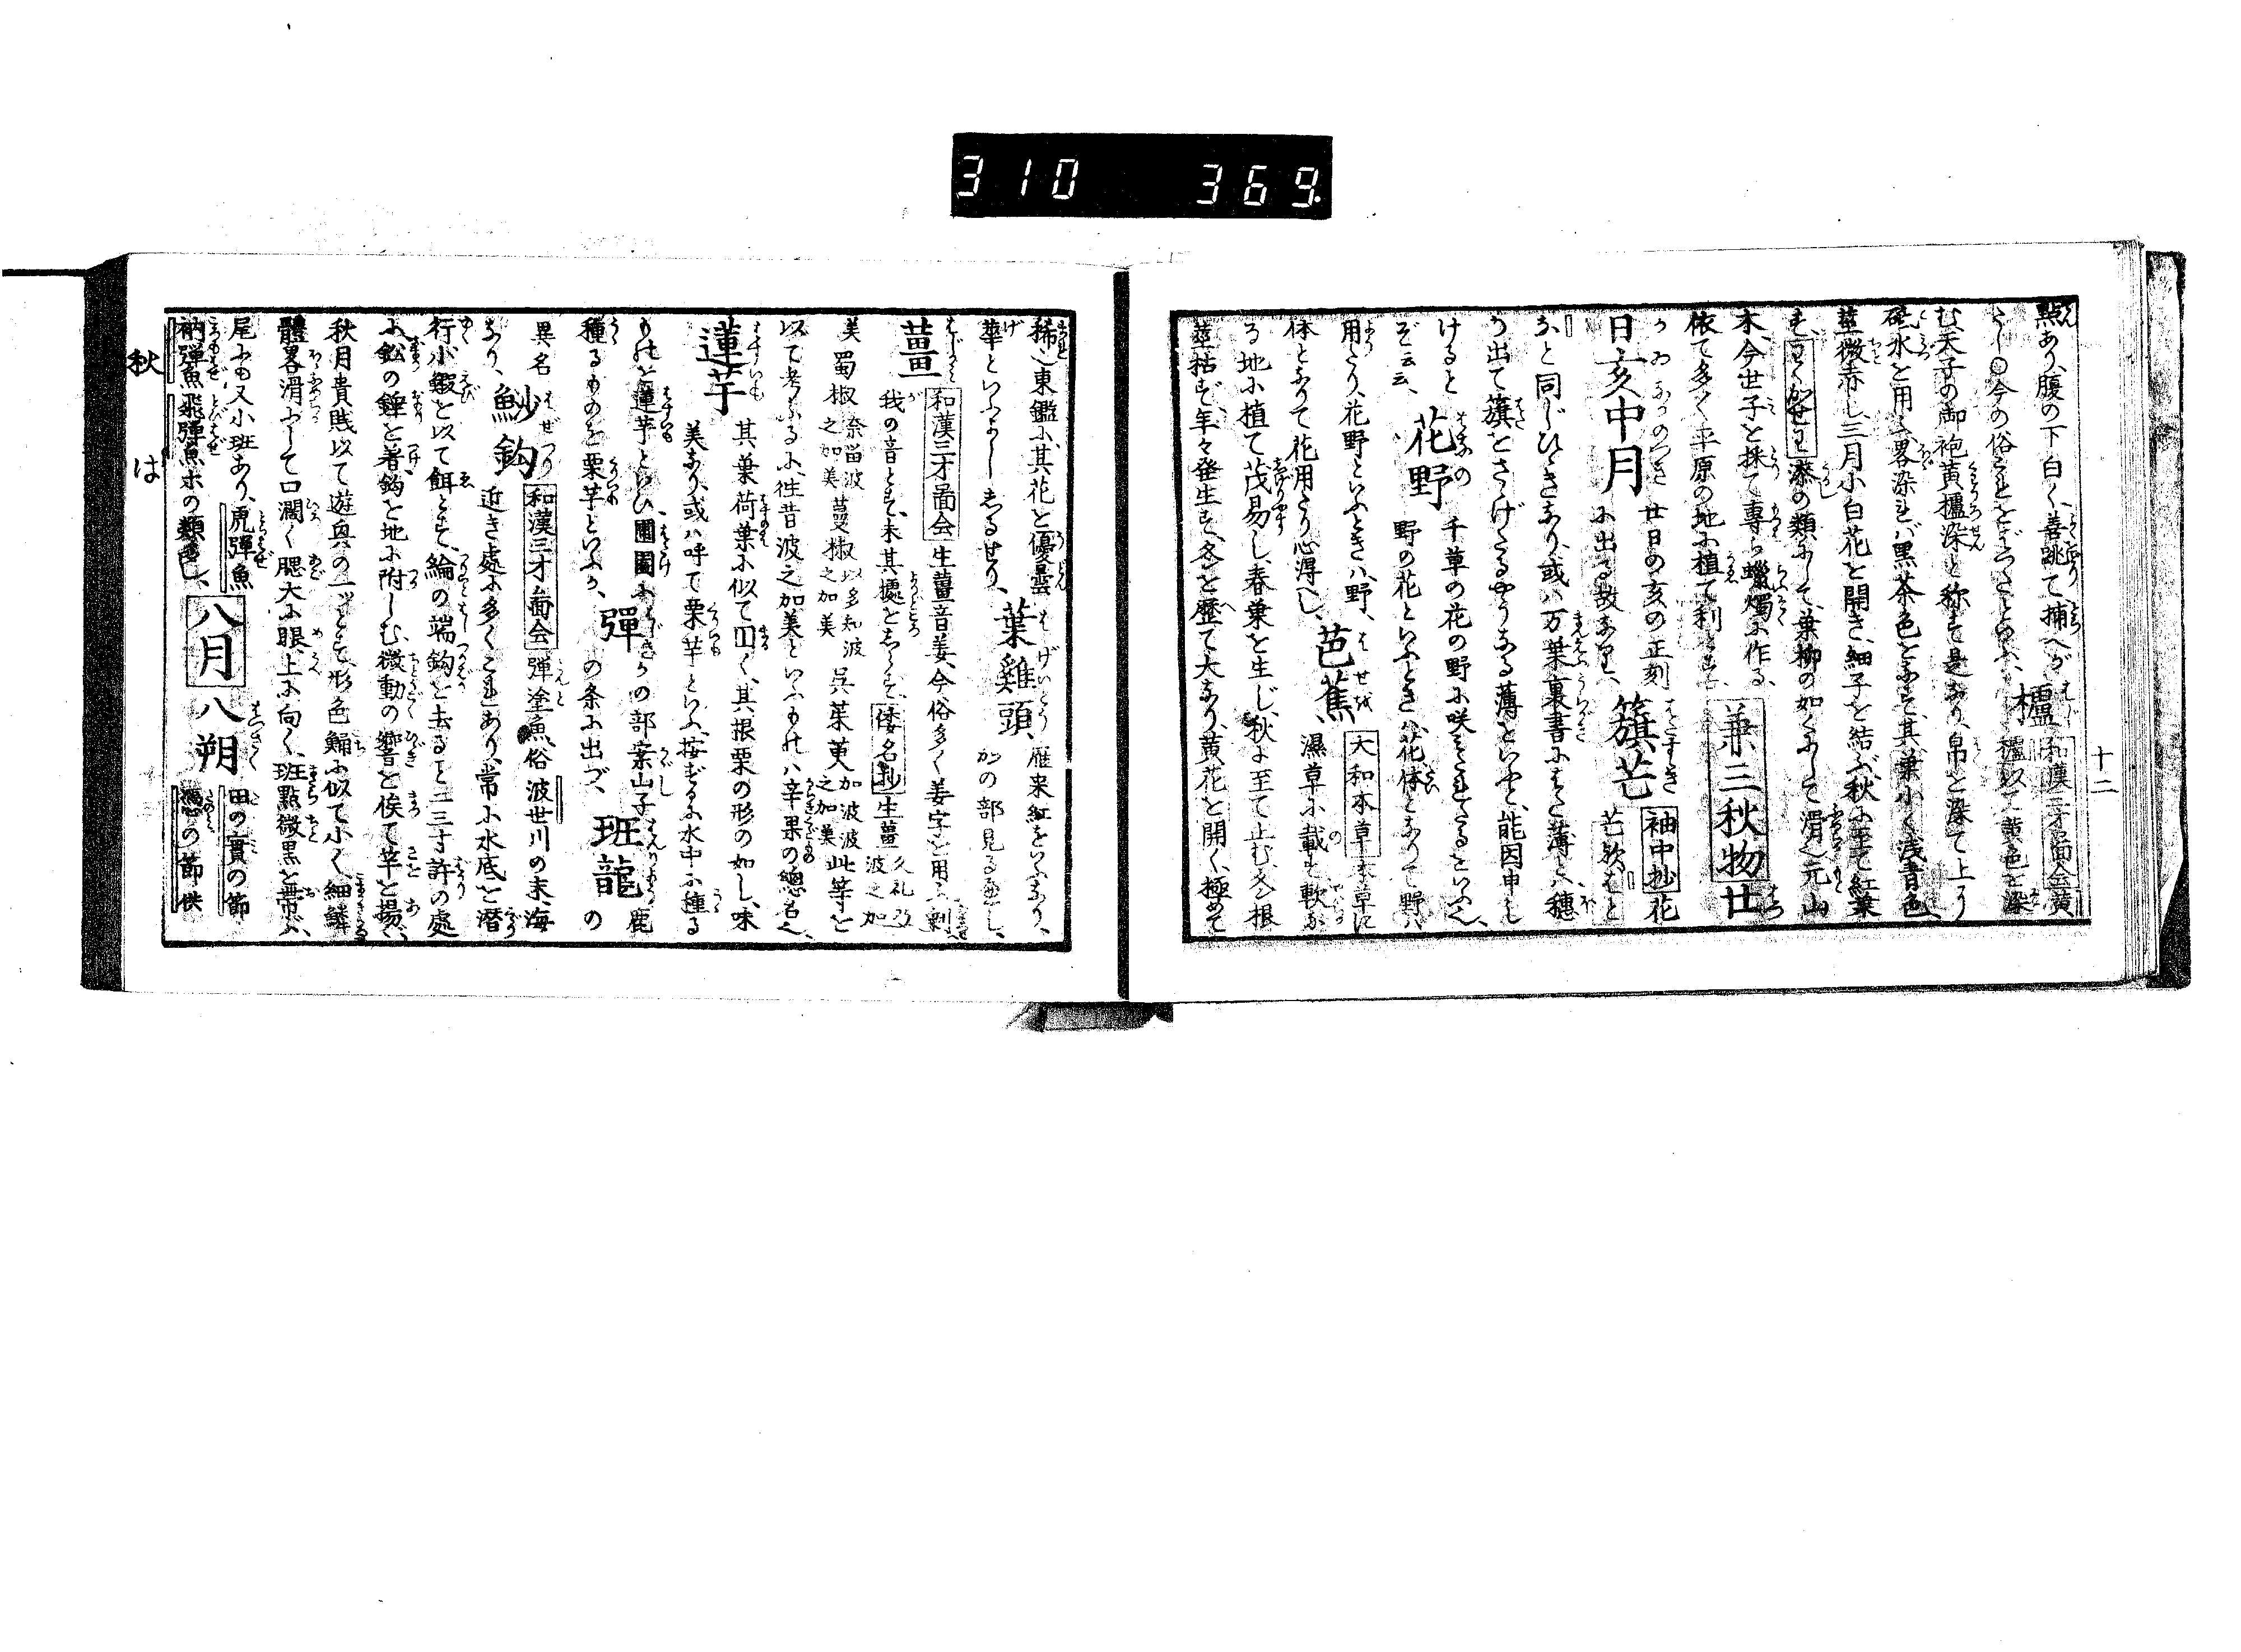 310 369.
十二
點あり、腹の下白く、善跳て、捕へが
櫨 和漢三才圖会 黄
櫨以て黄色を染
む天子の御袍黄櫨染と称す是なり、帛を染て上
礬水を用ふ、畧染れバ黒茶色をなす、其葉小く浅青色、
莖微赤し三月小白花を開き、細子を結ぶ、秋に至て紅葉
漆の類にして、葉柳の如くにして滑く、元山
木、今世子を採て専ら蠟燭に作る、
依て多く平原の地に植て利とす、
兼三秋物 廿
日亥中月 廿日の亥の正刻
に出る故なり、
籏芒 袖中抄 花
芒歟、はと
なと同じひゞきなり、或ハ万葉裏書にはた薄とハ穂
の出て籏をさゝげたるやうなる薄といへど、能因申し
けると
花野 千草の花の野に咲みだれたるをいふ、
野の花といふときハ、花体となりて野ハ
ぞ云云、
用なり、花野といふときハ、野、
体となりて花用なり心得べし、
芭蕉 大和本草 本草に
濕草に載す軟な
る地に植て茂易し、春葉を生じ、秋に至て止む、冬根
莖枯ず年々発生す、冬を歴て大なり、黄花を開く、極めて
稀也東鑑に、其花を優曇
華といふよししるせり、
葉雞頭、 雁来紅をいふなり、
かの部見るべし、
薑 和漢三才圖会 生薑音姜、今俗多く姜字を用ふ、剰
我の音とす、未其據をしらず、倭名抄 生薑 久礼乃
波之加
美 蜀椒 奈留波
之加美 蔓椒 以多知波
之加美 呉茱萸 加波波
之加美 此等を
以て考ふるに、徃昔波之加美といふものハ辛果の總名也、
蓮芋 其葉荷葉に似て円く、其根栗の形の如し、味
美なり、或ハ呼て栗芋といふ、按ずるに水中に種る
ものを蓮芋といひ、圃園に
種るものを栗芋といふか、
彈 かの部案山子
の条に出づ、
班龍 鹿
の
異名
魦鈎 和漢三才圖会 彈塗魚、俗波世川の末、海
近き處に多くこれあり、常に水底を潜
行小鰕を以て餌とす、綸の端鈎を去ること二三寸許の處
に鉛の錘を着鈎を地に附しむ、微動の響を俟て竿を揚、
秋月貴賎以て遊興の一ッとす、形色鯔に似て小く細鱗
體畧滑にして口濶く腮大に眼上に向く、班點微黒を帯ぶ、
尾にも又小班あり、虎彈魚
衲彈魚飛彈魚ホの類也、
八月
八朔 田の實の節
憑の節 供
秋 は